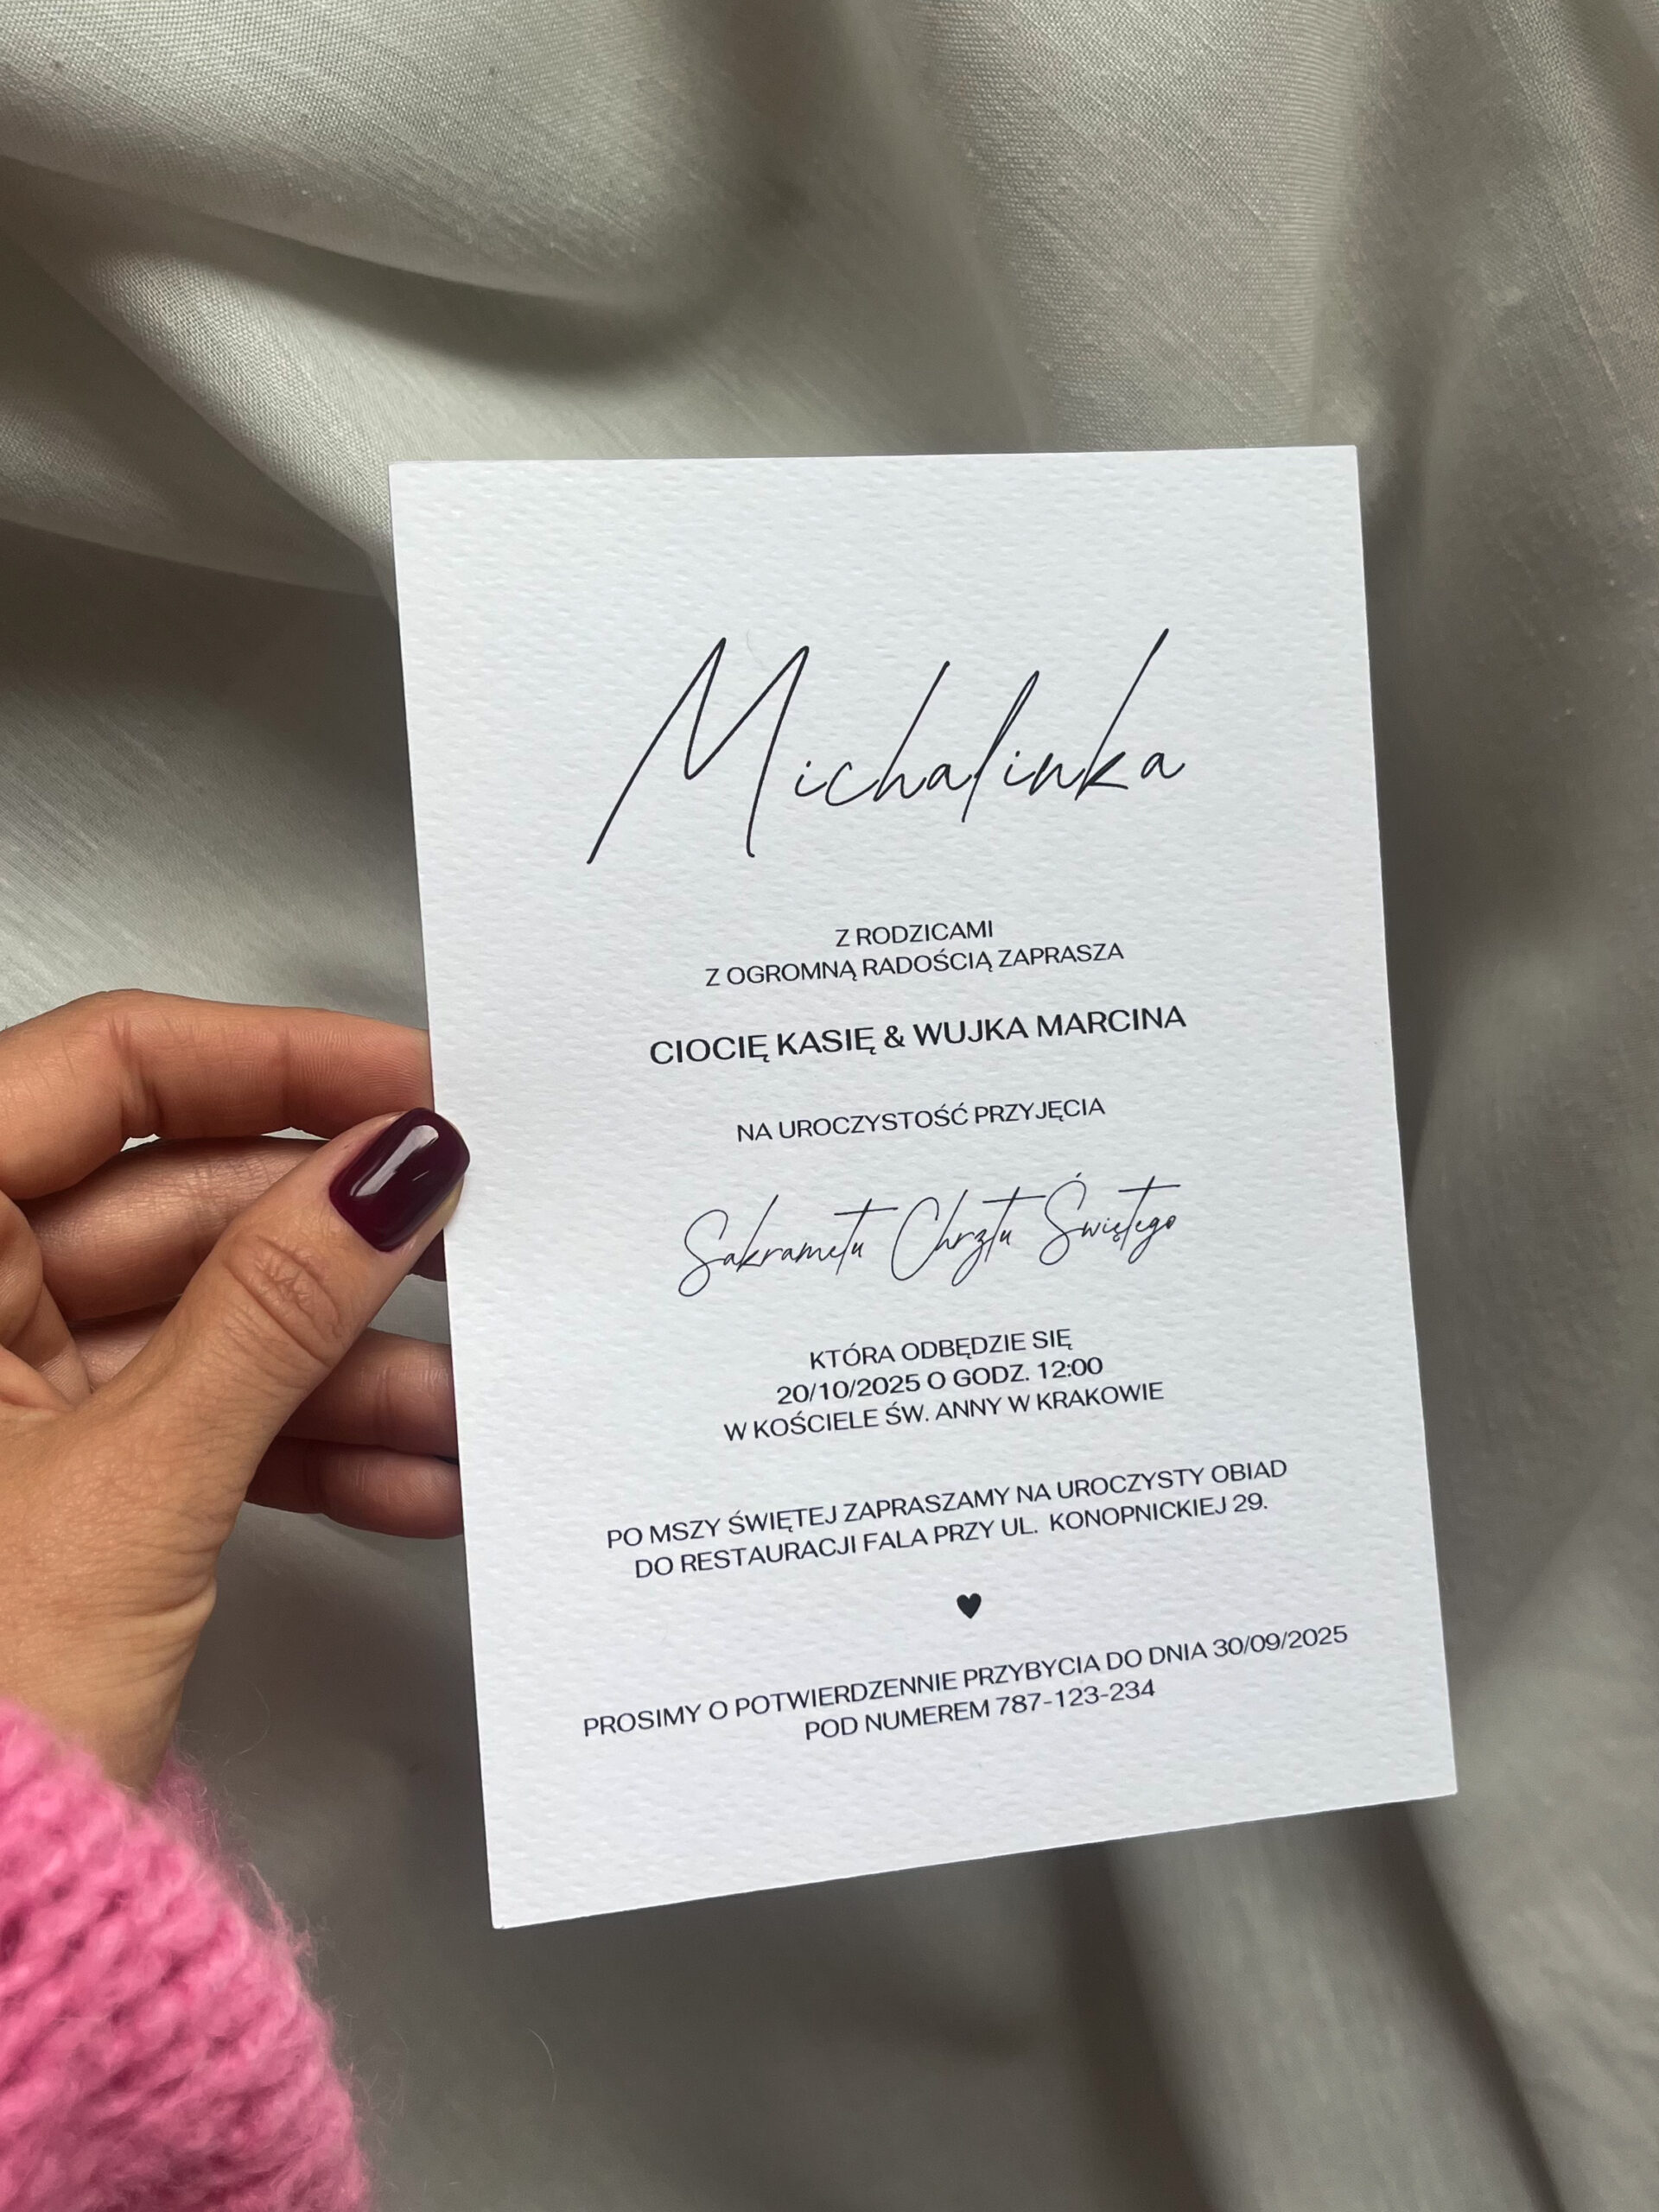 Michalinka
Z RODZICAMI
Z OGROMNĄ RADOŚCIĄ ZAPRASZA
CIOCIĘ KASIĘ & WUJKA MARCINA
NA UROCZYSTOŚĆ PRZYJĘCIA
Sakrametu Chrztu Świętego
KTÓRA ODBĘDZIE SIĘ
20/10/2025 O GODZ. 12:00
W KOŚCIELE ŚW. ANNY W KRAKOWIE
PO MSZY ŚWIĘTEJ ZAPRASZAMY NA UROCZYSTY OBIAD
DO RESTAURACJI FALA PRZY UL. KONOPNICKIEJ 29.
PROSIMY O POTWIERDZENNIE PRZYBYCIA DO DNIA 30/09/2025
POD NUMEREM 787-123-234